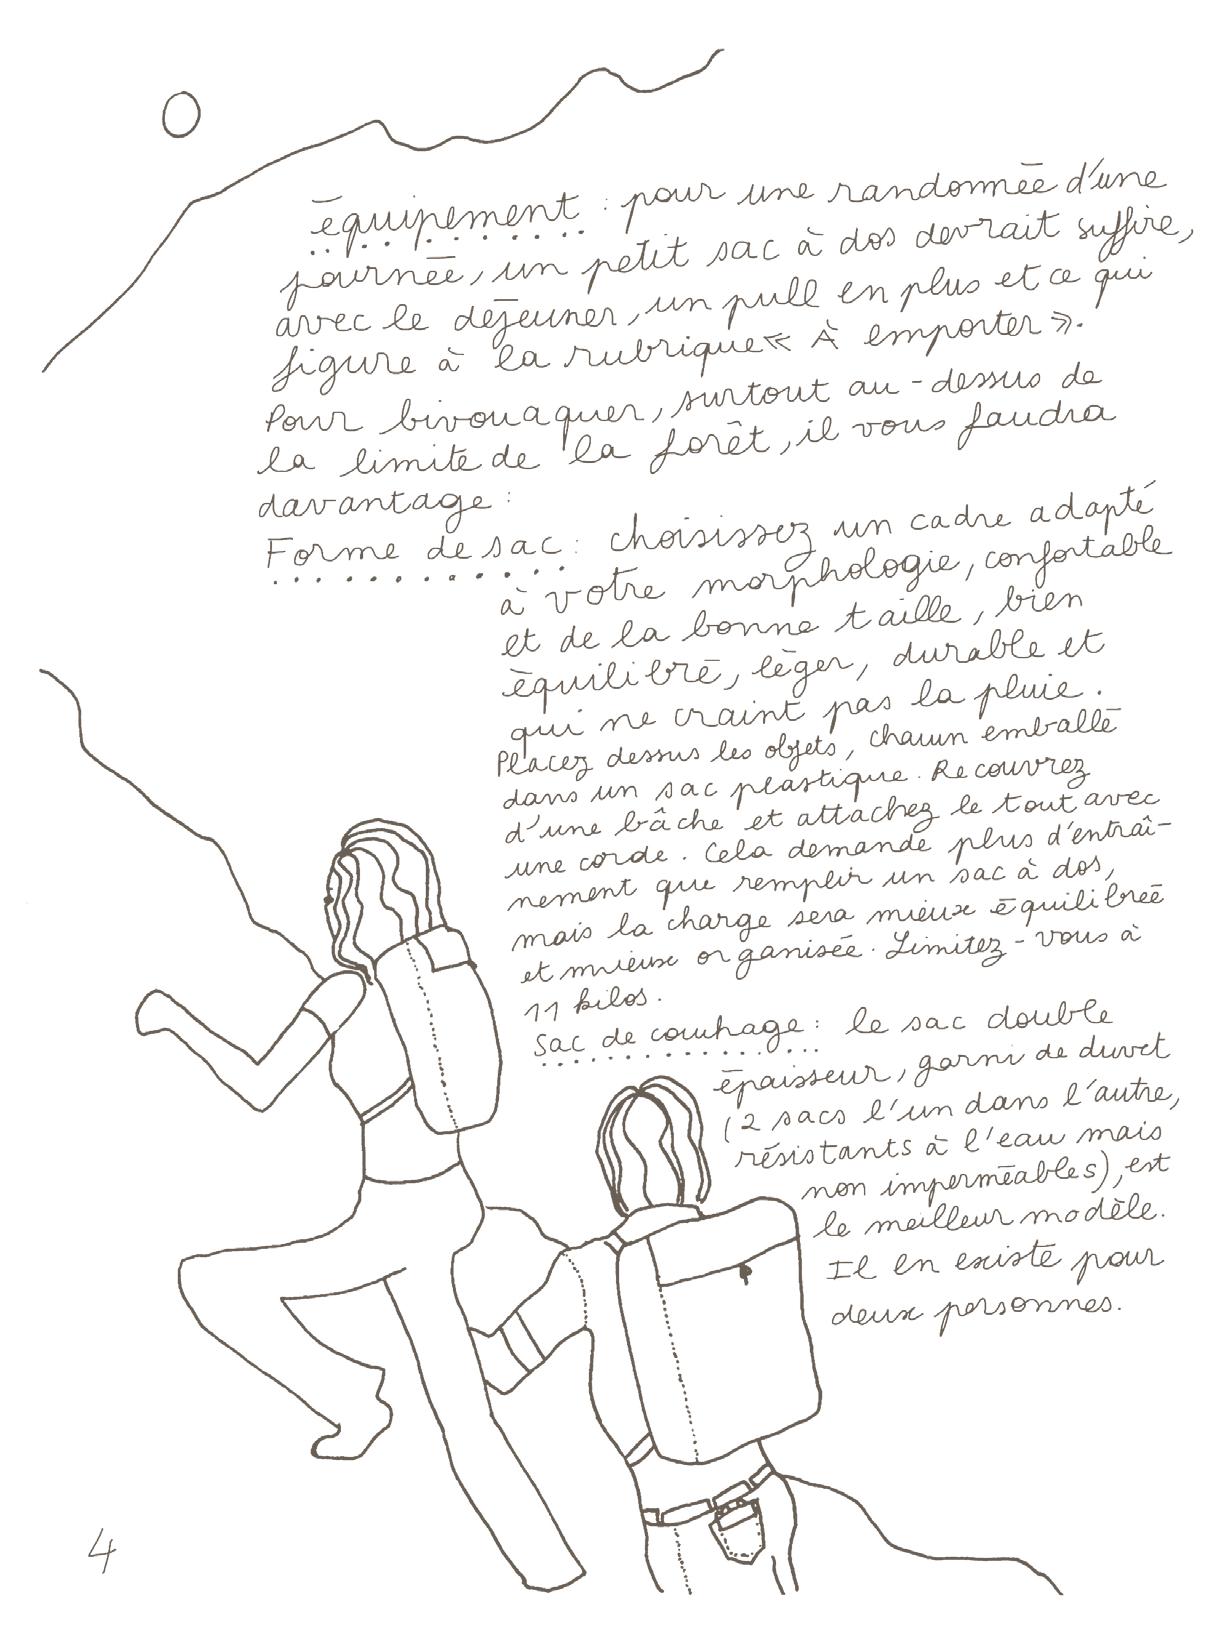 équipement : pour une randonnée d'une
journée, un petit sac à dos devrait suffire,
avec le déjeuner, un pull en plus et ce qui
figure à la rubrique « À emporter ».
Pour bivouaquer, surtout au-dessus de
la limite de la forêt, il vous faudra
davantage :
Forme de sac : choisissez un cadre adapté
à votre morphologie, confortable
et de la bonne taille, bien
équilibré, léger, durable et
qui ne craint pas la pluie.
Placez dessus les objets, chacun emballé
dans un sac plastique. Recouvrez
d'une bâche et attachez le tout avec
une corde. Cela demande plus d'entraî-
nement que remplir un sac à dos,
mais la charge sera mieux équilibrée
et mieux organisée. Limitez-vous à
11 kilos.
Sac de couchage : le sac double
épaisseur, garni de duvet
(2 sacs l'un dans l'autre,
résistants à l'eau mais
non imperméables), est
le meilleur modèle.
Il en existe pour
deux personnes.
4